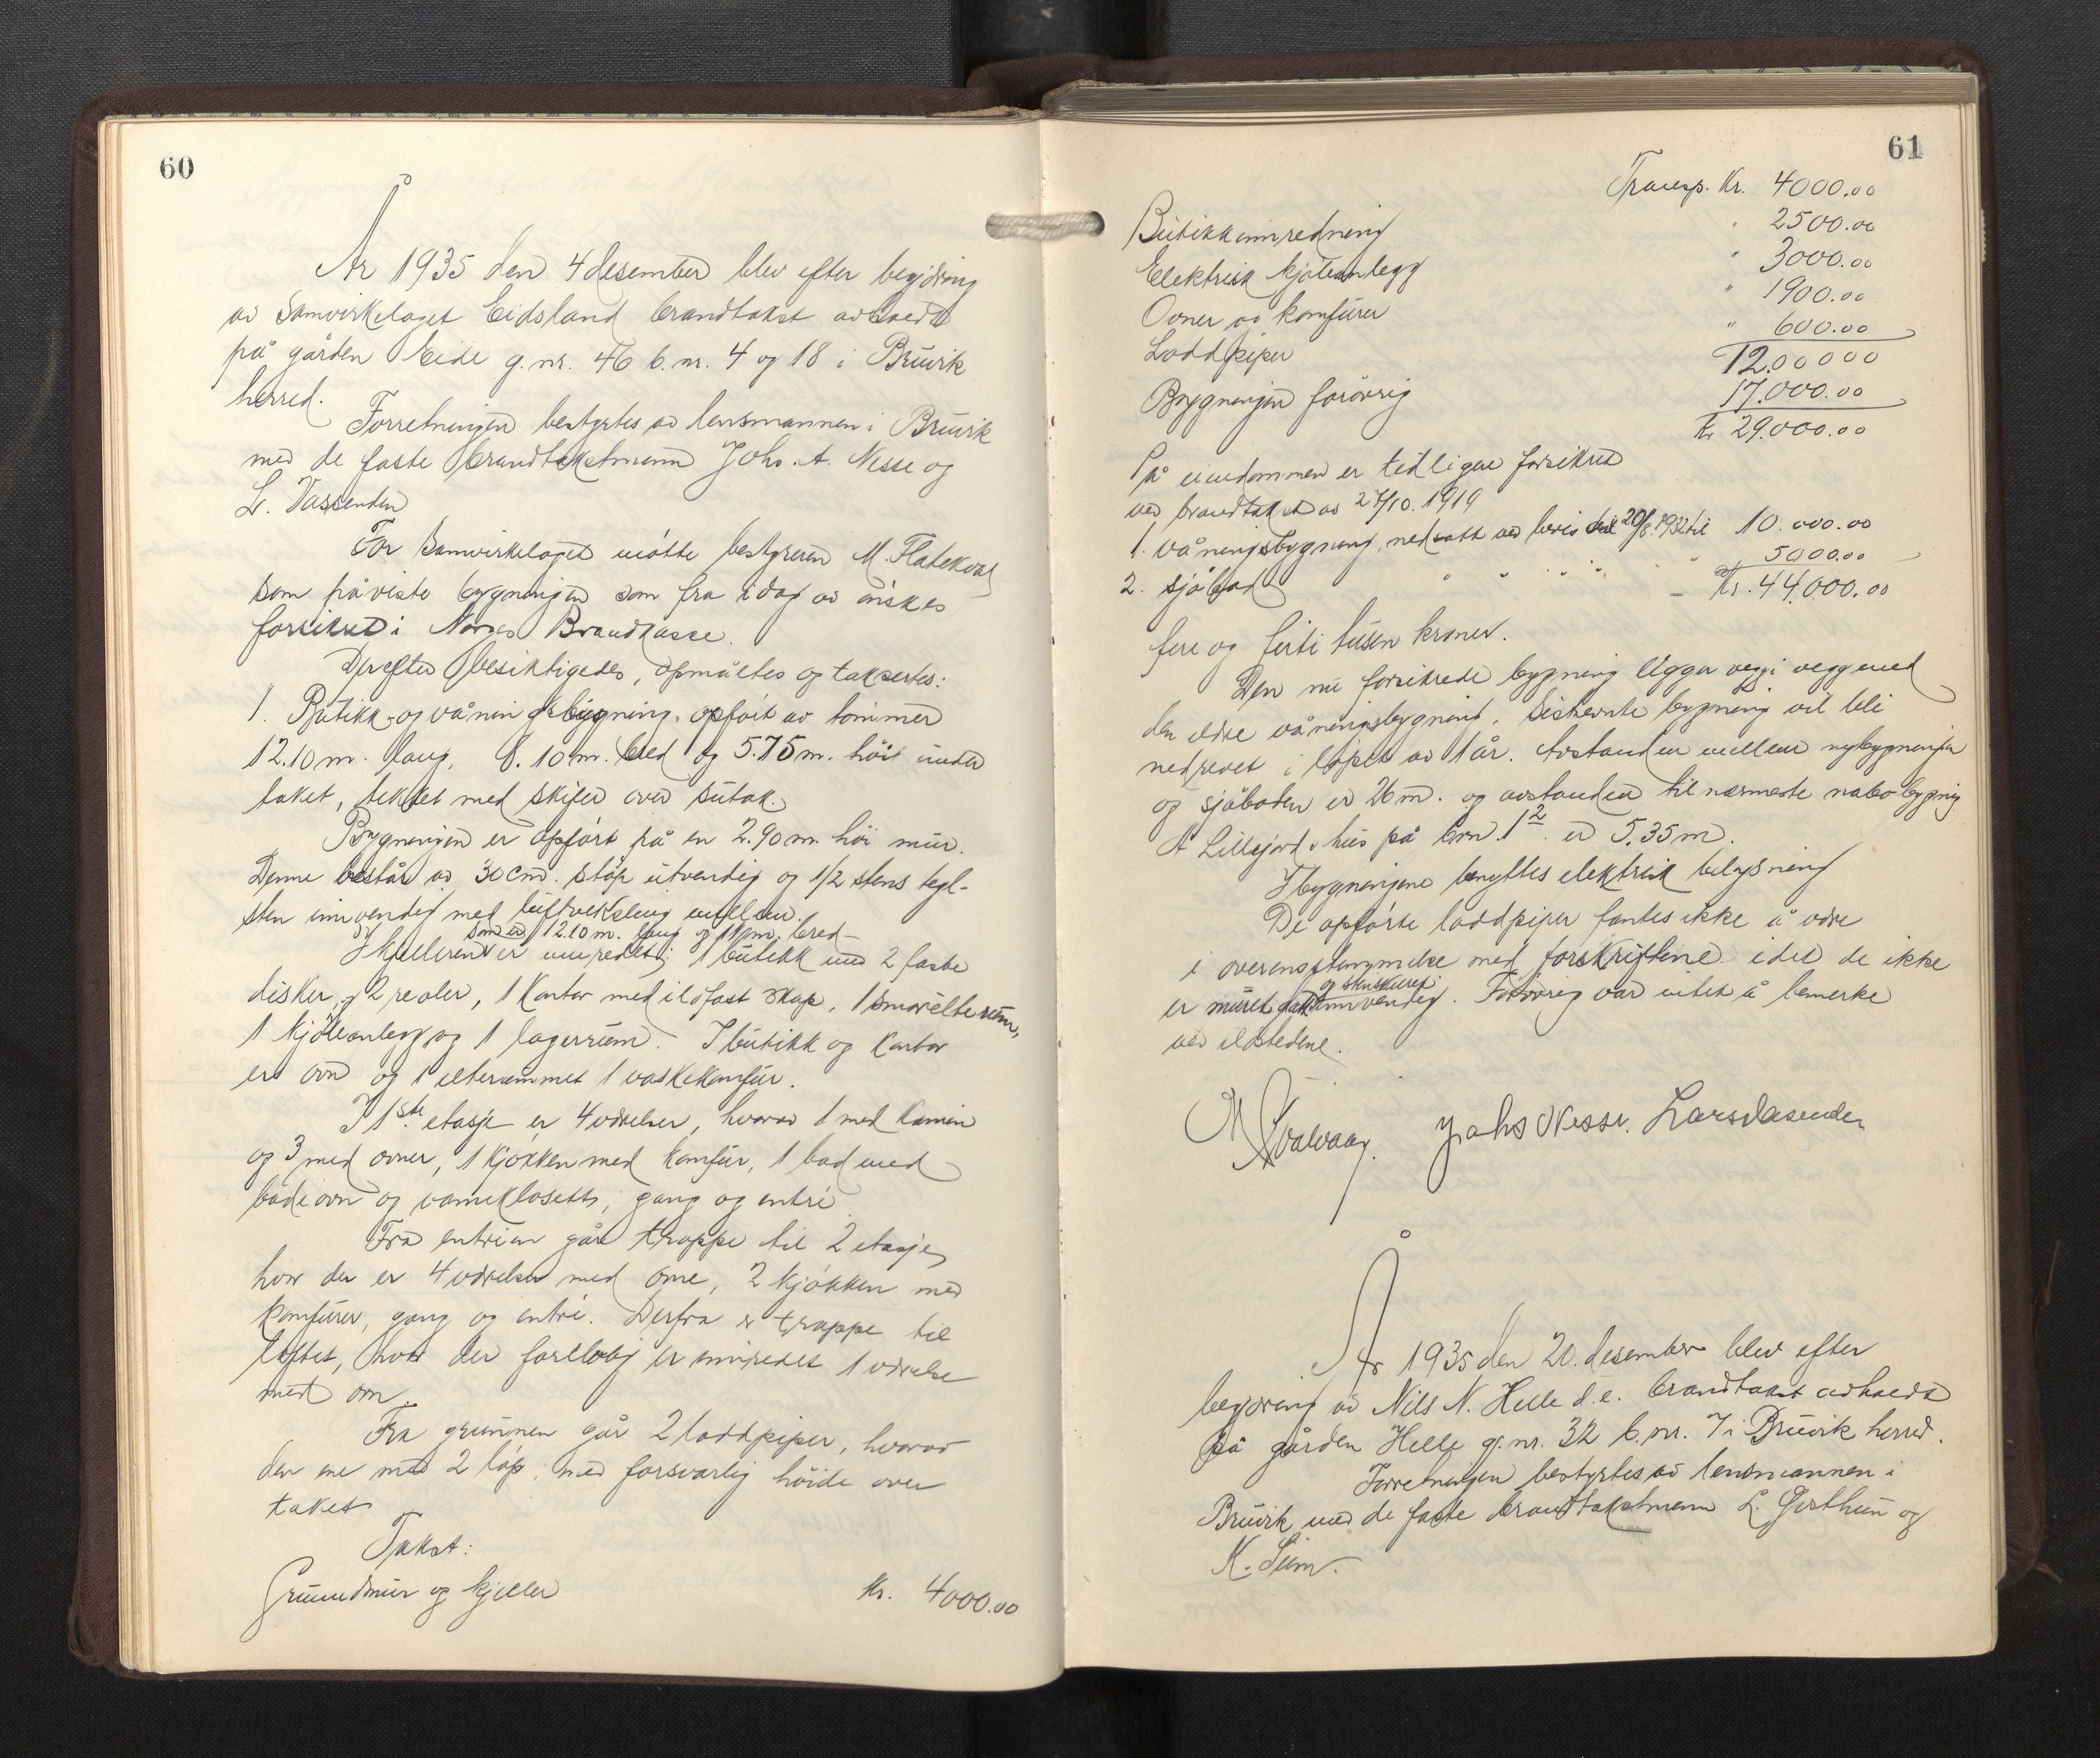 60
År 1935 den 4 desember blev efter begjæring
av Samvirkelaget Eidsland brandtakst avholdt
på gården Eide g.nr. 46 b.nr. 4 og 18 i Bruvik
herred.
Forretningen bestyrtes av lensmannen i Bruvik
med de faste brandtakstmenn Johs. A. Nesse og
L. Vassenden
For Samvirkelaget møtte bestyreren M. Flatekval
som påviste bygningen som fra idag av ønskes
forsikret i Norges Brandkasse.
Derefter besiktigedes, opmåltes og taksertes:
1. Butikk- og våningsbygning, opført av tømmer
12.10 m. lang, 8.10 m. bred og 5.75 m. høi under
taket, tekket med skifer over sutak.
Bygningen er opført på en 2.90 m. høi mur.
Denne består av 30 cm. støp utvendig og 1/2 stens tegl-
sten innvendig med luftveksling mellem.
som er 12.10 m. lang og 11 m. bred
I kjelleren er innredet: 1 butikk med 2 faste
disker, og 2 reoler, 1 kontor med ildfast skap, 1 smørelterum,
1 kjøleanlegg, og 1 lagerrum. I butikk og kontor
er ovn og i elterummet 1 vaskekomfur.
I 1ste etasje er 4 værelser, hvorav 1 med kamin
og 3 med ovner, 1 kjøkken med komfur, 1 bad med
badeovn og vannklosett, gang og entré
Fra entréen går trappe til 2 etasje,
hvor der er 4 værelser med ovne, 2 kjøkken med
komfurer, gang og entré. Derfra er trappe til
loftet, hvor der foreløbig er innredet 1 værelse
med ovn.
Fra grunnen går 2 loddpiper, hvorav
den ene med 2 løp, med forsvarlig høide over
taket
Takst:
Grunnmur og kjeller Kr. 4000.00
61
Transp. Kr. 4000.00
Butikkinnredning " 2500.00
Elektrisk kjøleanlegg " 3000.00
Ovner og komfurer " 1900.00
Loddpiper " 600.00
12.000 00
Bygningen forøvrig 17.000.00
Kr 29.000.00
På eiendommen er tidligere forsikret
ved brandtakst av 27/10. 1919
1. våningsbygning, nedsatt ved brevis 20/8. 1932 til 10.000.00
2. sjøbod " " " " " 5000.00
Kr. 44.000.00
fire og førti tusen kroner.
Den nu forsikrede bygning ligger vegg i vegg med
den eldre våningsbygning. Sistnevnte bygning vil bli
nedrevet i løpet av 1 år. Avstanden mellem nybygningen
og sjøboden er 26 m. og avstanden til nærmeste nabobygning
A Lillejord's hus på brn. 12 er 5.35 m.
I bygningene benyttes elektrisk belysning
De opførte loddpiper fantes ikke å være
i overensstemmelse med forskriftene idet de ikke
og slemskuret
er muret godt innvendig. Forøvrig var intet å bemerke
ved ildstedene.
M Kvalvaag. Johs Nesse. Lars Vasenden
År 1935 den 20. desember blev efter
begjæring av Nils N. Helle d.e. brandtakst avholdt
på gården Helle g.nr. 32 b.nr. 7 i Bruvik herred.
Forretningen bestyrtes av lensmannen i
Bruvik med de faste brandtakstmenn L. Gjerthun og
K. Sum.